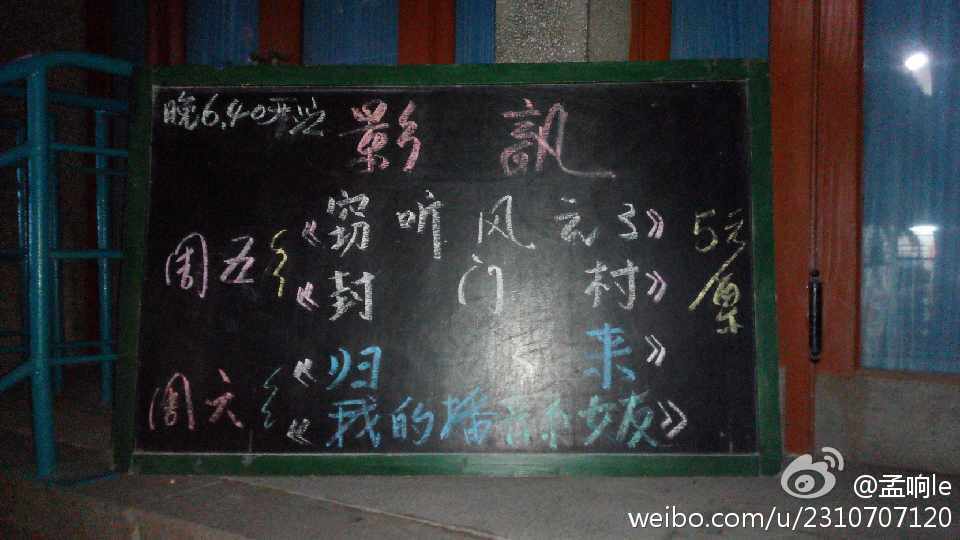 晚6.40开业
影訊
周五《窃听风云3》
《封门村》
5元
周六《归来》
《我的播音系女友》
@孟响le
weibo.com/u/2310707120